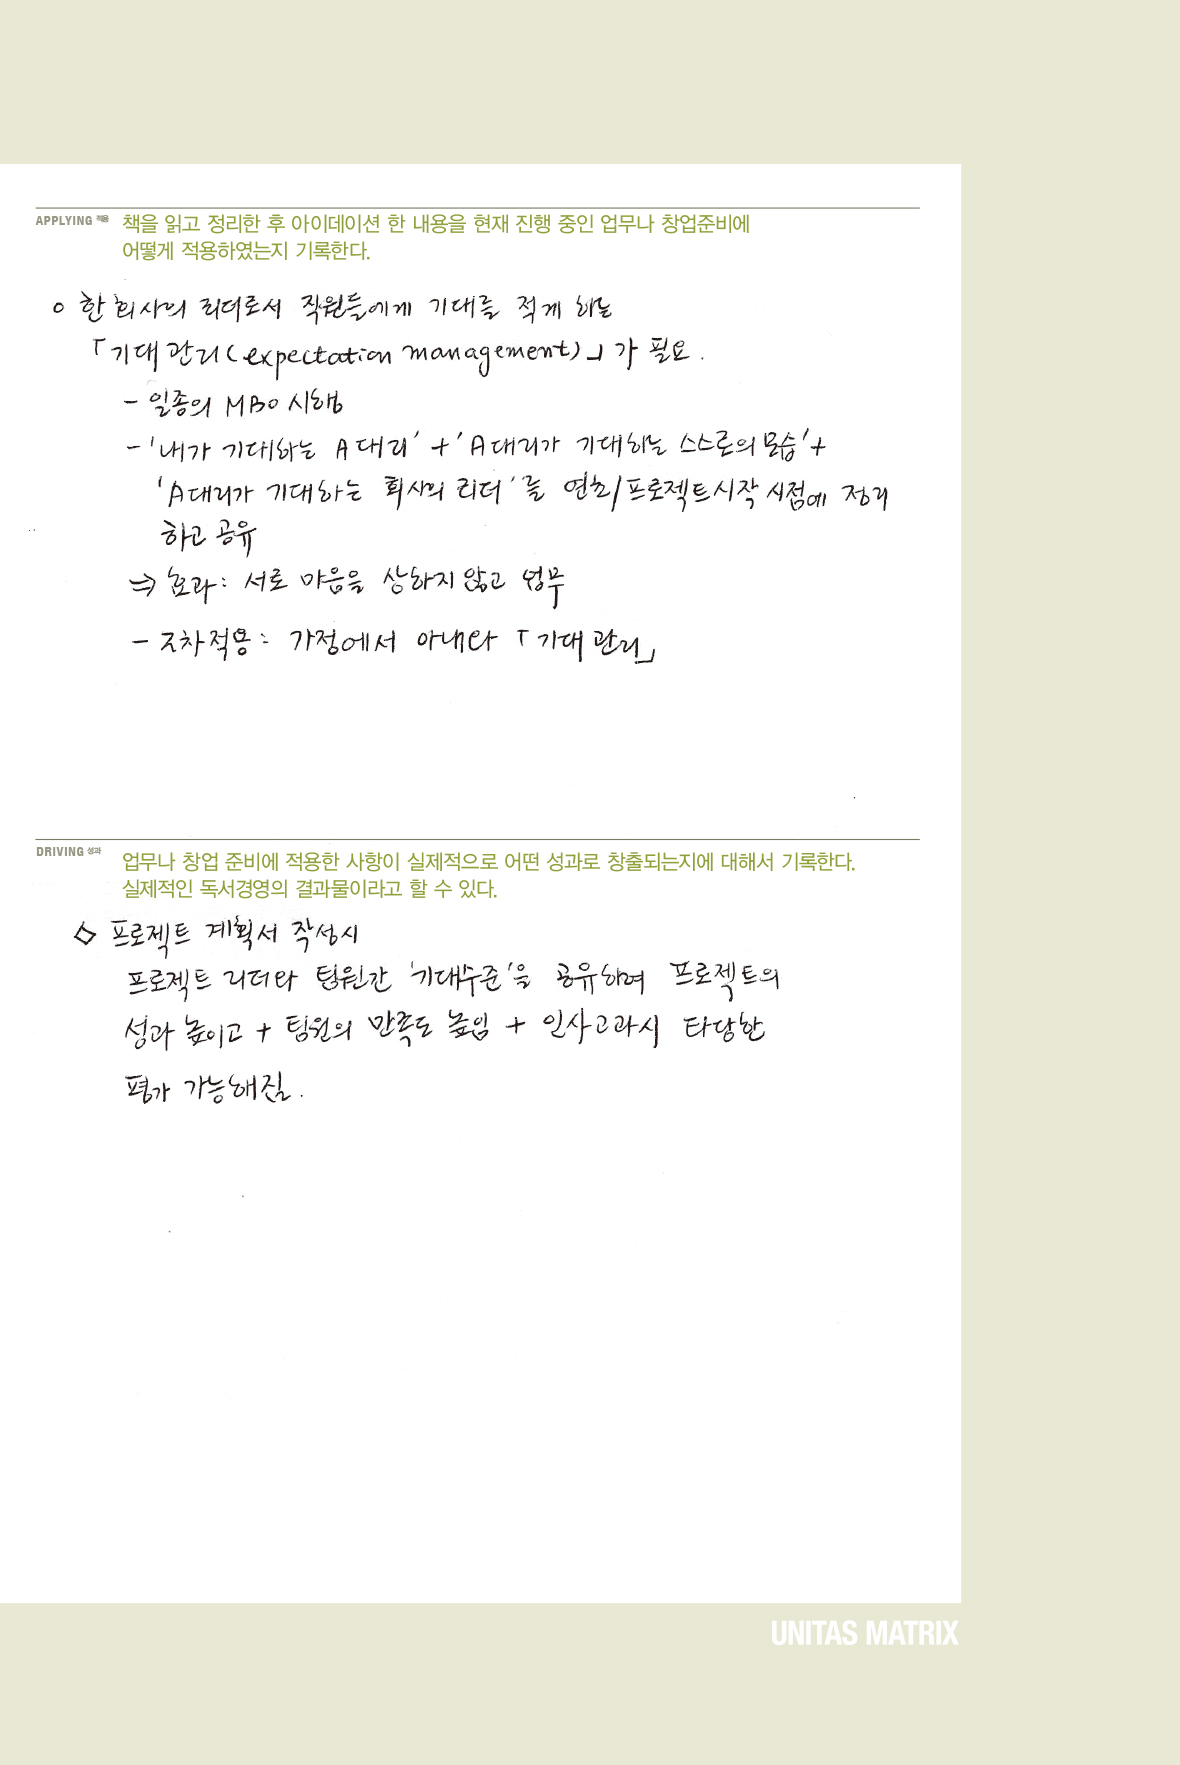 APPLYING 적용
책을 읽고 정리한 후 아이데이션 한 내용을 현재 진행 중인 업무나 창업준비에
어떻게 적용하였는지 기록한다.
○ 한 회사의 리더로서 직원들에게 기대를 적게 하는
「기대관리(expectation management)」가 필요.
- 일종의 MBO 시행
- '내가 기대하는 A대리' + 'A대리가 기대하는 스스로의 모습' +
'A대리가 기대하는 회사의 리더'를 연초/프로젝트시작 시점에 정리
하고 공유
⇒ 효과: 서로 마음을 상하지 않고 업무
- 2차적용: 가정에서 아내와 「기대관리」
DRIVING 성과
업무나 창업 준비에 적용한 사항이 실제적으로 어떤 성과로 창출되는지에 대해서 기록한다.
실제적인 독서경영의 결과물이라고 할 수 있다.
◇ 프로젝트 계획서 작성시
프로젝트 리더와 팀원간 '기대수준'을 공유하여 프로젝트의
성과 높이고 + 팀원의 만족도 높임 + 인사고과시 타당한
평가 가능해짐.
UNITAS MATRIX